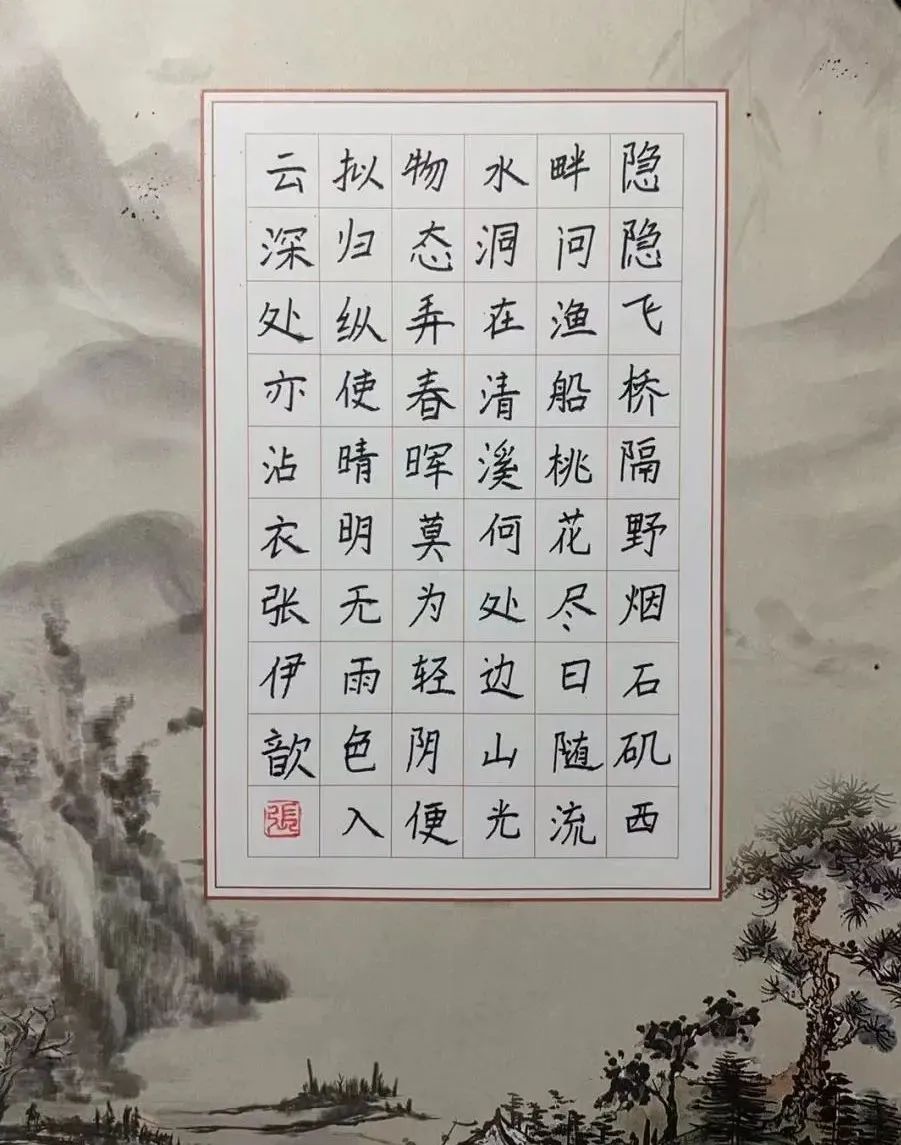 隐隐飞桥隔野烟石矶西
畔问渔船桃花尽日随流
水洞在清溪何处边山光
物态弄春晖莫为轻阴便
拟归纵使晴明无雨色入
云深处亦沾衣张伊歆
張